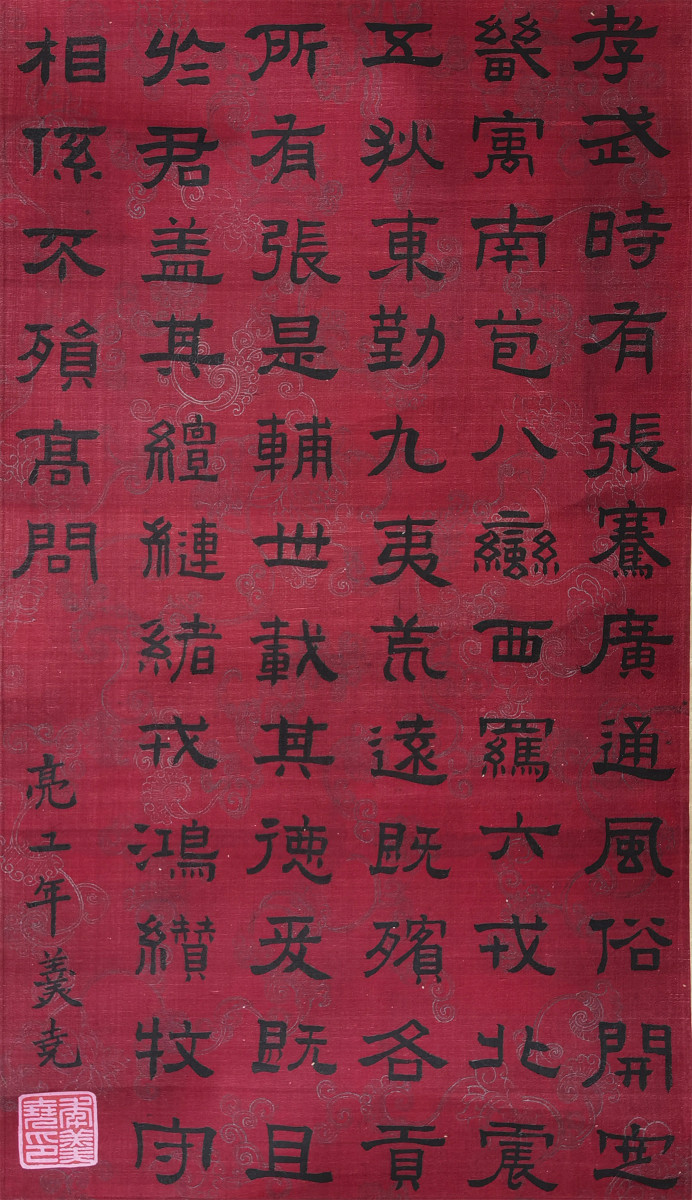 孝武時有張騫廣通風俗開定
畿寓南苞八蠻西羈六戎北震
五狄東勤九夷荒遠既殯各貢
所有張是輔世載其德爰既且
於君盖其繵縺緒戎鴻纘牧守
相係不殞高問
亮工年羹堯
年羹堯印